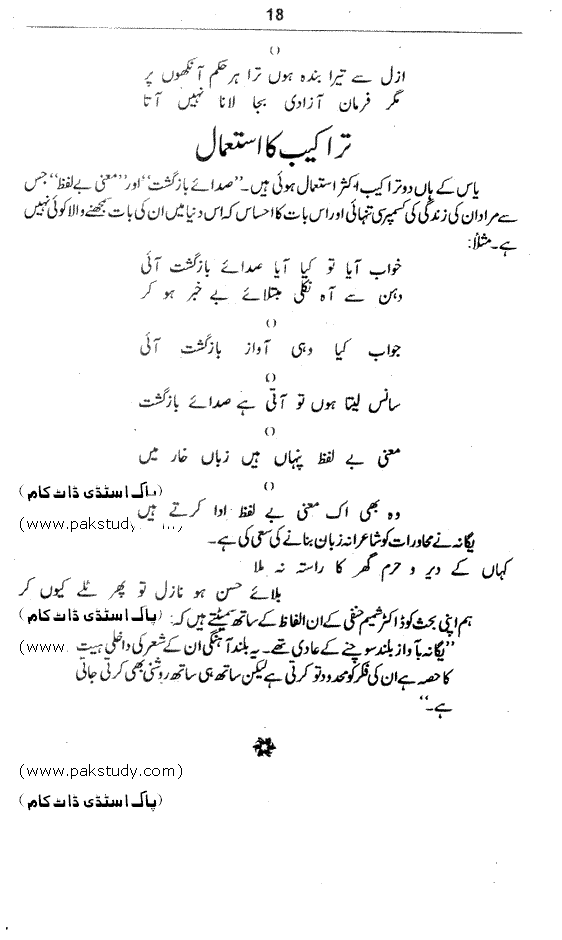 18
()
ازل سے تیرا بندہ ہوں ترا ہر حکم آنکھوں پر
مگر فرمان آزادی بجا لانا نہیں آتا
تراکیب کا استعمال
یاس کے ہاں دو تراکیب اکثر استعمال ہوئی ہیں۔ ”صدائے بازگشت“ اور ”معنی بے لفظ“ جس
سے مراد ان کی زندگی کی کسمپرسی تنہائی اور اس بات کا احساس کہ اس دنیا میں ان کی بات سمجھنے والا کوئی نہیں
ہے۔ مثلاً:
خواب آیا تو کیا آیا صدائے بازگشت آئی
دہن سے آہ نکلی مبتلائے بے خبر ہو کر
()
جواب کیا وہی آواز بازگشت آئی
()
سانس لیتا ہوں تو آتی ہے صدائے بازگشت
()
معنی بے لفظ پنہاں ہیں زباں خار میں
()
(پاک اسٹڈی ڈاٹ کام)
وہ بھی اک معنی بے لفظ ادا کرتے ہیں
(www.pakstudy
یگانہ نے محاورات کو شاعرانہ زبان بنانے کی سعی کی ہے۔
کہاں کے دیر و حرم گھر کا راستہ نہ ملا
بلائے حسن ہو نازل تو پھر ٹلے کیوں کر
ہم اپنی بحث کو ڈاکٹر شمیم حنفی کے ان الفاظ کے ساتھ سمیٹتے ہیں کہ:
(پاک اسٹڈی ڈاٹ کام)
”یگانہ بآواز بلند سوچنے کے عادی تھے۔ یہ بلند آہنگی ان کے شعر کی داخلی ہیت
(www.
کا حصہ ہے ان کی فکر کو محدود تو کرتی ہے لیکن ساتھ ہی ساتھ روشنی بھی کرتی جاتی
ہے۔“
(www.pakstudy.com)
(پاک اسٹڈی ڈاٹ کام)